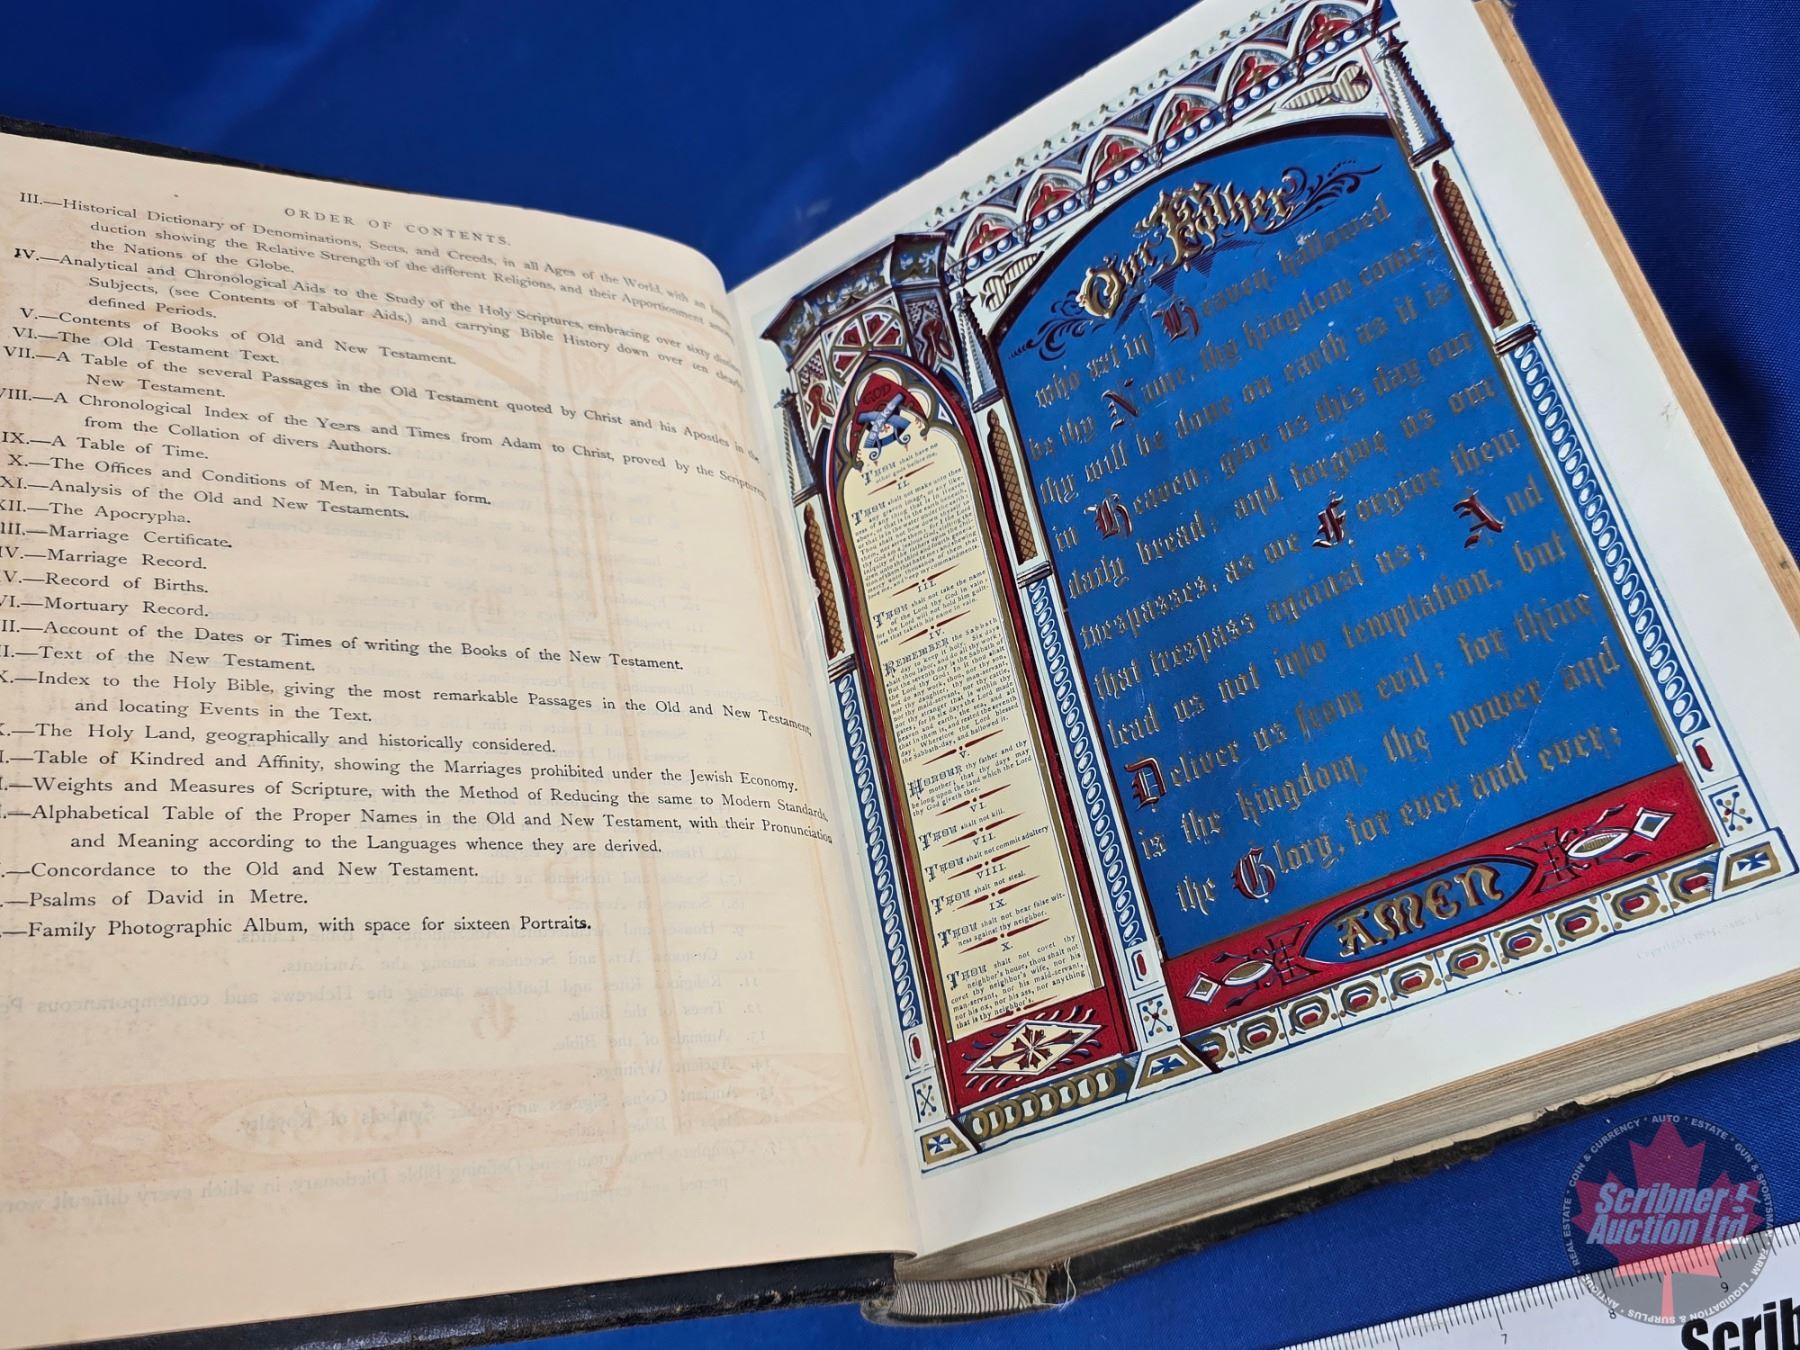 ORDER OF CONTENTS.
III.—Historical Dictionary of Denominations, Sects, and Creeds, in all Ages of the World, with an
duction showing the Relative Strength of the different Religions, and their Apportionment among
the Nations of the Globe.
IV.—Analytical and Chronological Aids to the Study of the Holy Scriptures, embracing over sixty distinct
Subjects, (see Contents of Tabular Aids,) and carrying Bible History down over ten clearly
defined Periods.
V.—Contents of Books of Old and New Testament.
VI.—The Old Testament Text.
VII.—A Table of the several Passages in the Old Testament quoted by Christ and his Apostles in the
New Testament.
VIII.—A Chronological Index of the Years and Times from Adam to Christ, proved by the Scriptures,
from the Collation of divers Authors.
IX.—A Table of Time.
X.—The Offices and Conditions of Men, in Tabular form.
XI.—Analysis of the Old and New Testaments.
XII.—The Apocrypha.
III.—Marriage Certificate.
IV.—Marriage Record.
V.—Record of Births.
VI.—Mortuary Record.
II.—Account of the Dates or Times of writing the Books of the New Testament.
I.—Text of the New Testament.
X.—Index to the Holy Bible, giving the most remarkable Passages in the Old and New Testament,
and locating Events in the Text.
X.—The Holy Land, geographically and historically considered.
I.—Table of Kindred and Affinity, showing the Marriages prohibited under the Jewish Economy.
I.—Weights and Measures of Scripture, with the Method of Reducing the same to Modern Standards,
I.—Alphabetical Table of the Proper Names in the Old and New Testament, with their Pronunciation
and Meaning according to the Languages whence they are derived.
.—Concordance to the Old and New Testament.
.—Psalms of David in Metre.
.—Family Photographic Album, with space for sixteen Portraits.
GOD
THOU shalt have no
other gods before me.
II.
THOU shalt not make unto thee
any graven image, or any like-
II.
THOU shalt not take the name
of the Lord thy God in vain:
for the Lord will not hold him guilt-
less that taketh his name in vain.
IV.
REMEMBER the Sabbath
day to keep it holy. Six days
shalt thou labor, and do all thy work:
But the seventh day is the Sabbath of
the Lord thy God. In it thou shalt
not do any work, thou, nor thy son,
nor thy daughter, thy manservant,
nor thy maid-servant, nor thy cattle,
nor thy stranger that is within thy
gates: for in six days the Lord made
heaven and earth, the sea, and all
that in them is, and rested the seventh
day: Wherefore the Lord blessed
the Sabbath-day, and hallowed it.
V.
HONOUR thy father and thy
mother, that thy days may
be long upon the land which the Lord
thy God giveth thee.
VI.
THOU shalt not kill.
VII.
THOU shalt not commit adultery
VIII.
THOU shalt not steal.
IX.
THOU shalt not bear false wit-
ness against thy neighbor.
X.
THOU shalt not covet thy
neighbor's house, thou shalt not
covet thy neighbor's wife, nor his
man-servant, nor his maid-servant,
nor his ox, nor his ass, nor anything
that is thy neighbor's.
Our Father
who art in Heaven, hallowed
be thy Name, thy kingdom come,
thy will be done on earth as it is
in Heaven; give us this day our
daily bread; and forgive us our
trespasses, as we Forgive them
that trespass against us; And
lead us not into temptation, but
Deliver us from evil; for thine
is the kingdom, the power and
the Glory, for ever and ever;
AMEN
Scribner
Auction Ltd.
REAL ESTATE · COIN & CURRENCY · AUTO · ESTATE · GUN & SPORTSMAN · FARM · LIQUIDATION & SURPLUS · ANTIQUE
7 8 9
Scrib